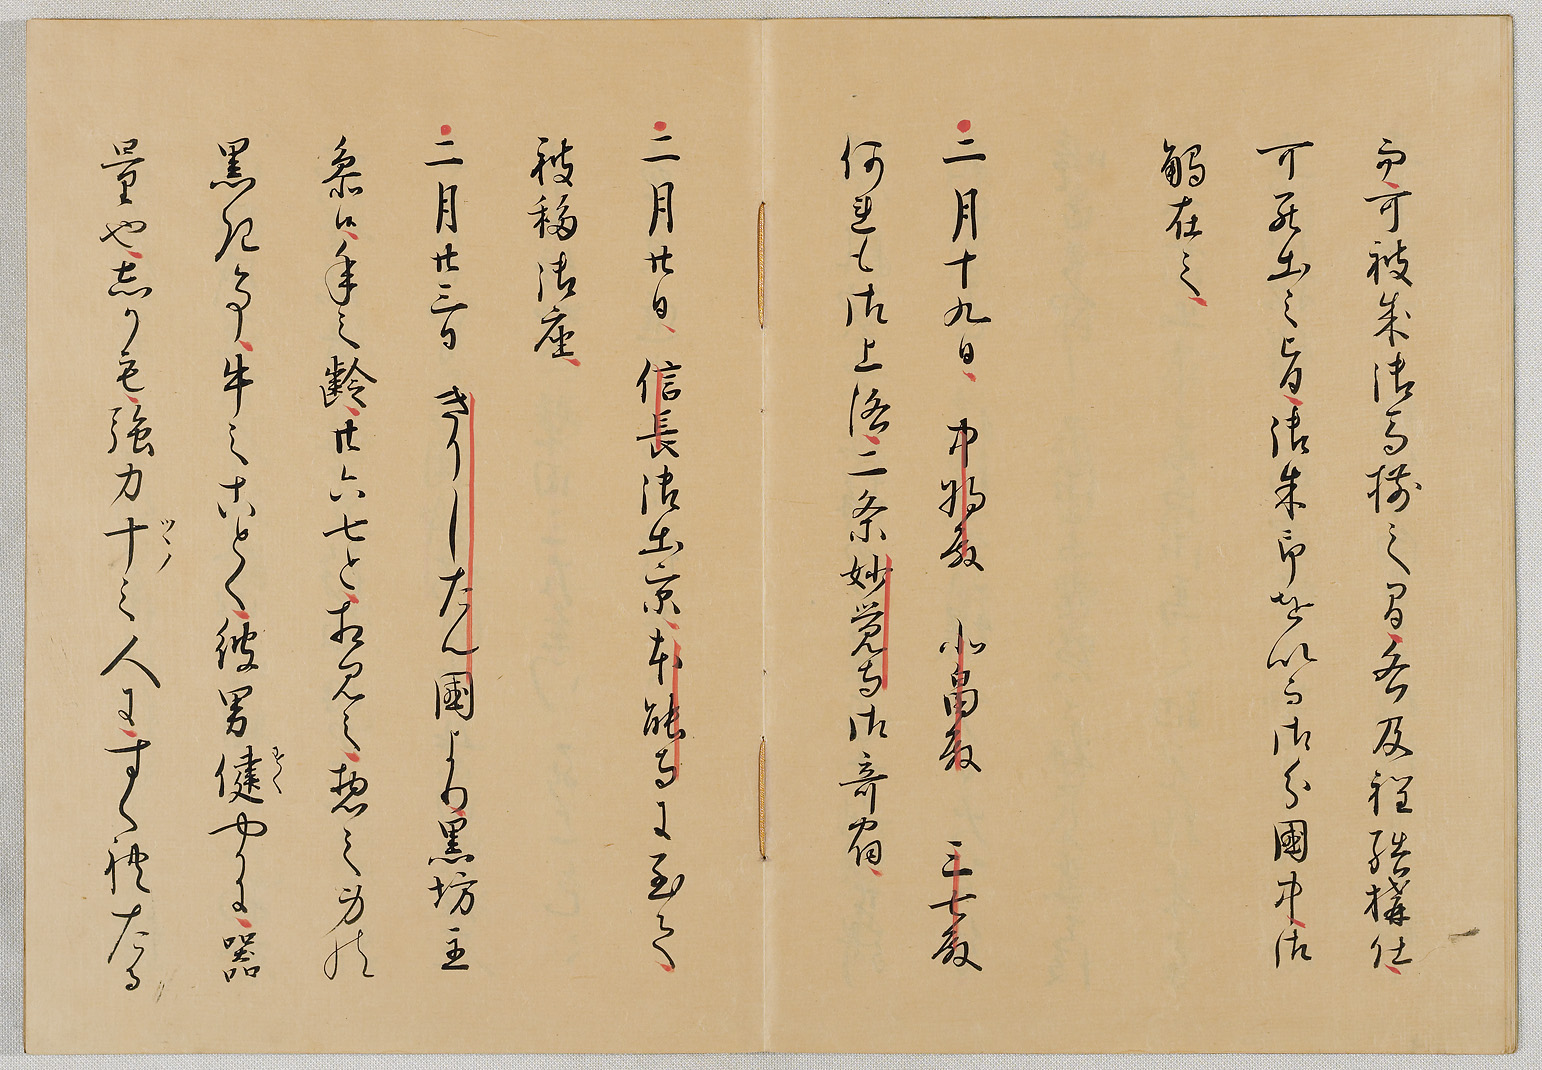 而可被成御馬揃之間各及程結構仕
可罷出之旨御朱印を以而御分國中御
觸在之
二月十九日中将殿 北畠殿 三七殿
何れも御上洛二条妙覚寺御寄宿
二月廿日信長御出京本能寺に至て
被移御座
二月廿三日きりしたん國より黒坊主
参候年之齢廿六七と相見え惣之身の
黒き事牛之ことく彼男健やかに器
量也しかも強力十之人にすくれたる